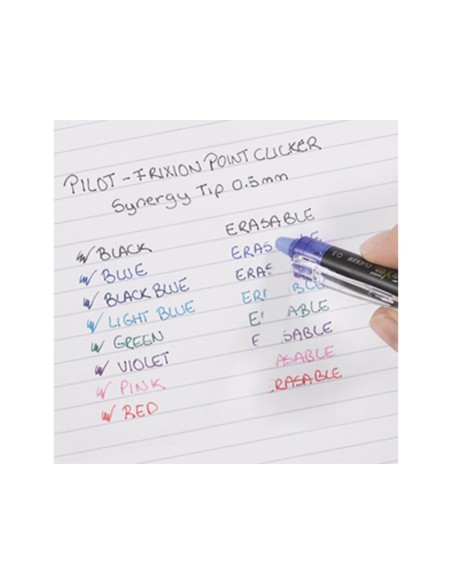 PILOT - FRIXION POINT CLICKER
Synergy Tip 0.5mm
BLACK ERASABLE
BLUE ERAS
BLACK BLUE ERAS
LIGHT BLUE ER BLE
GREEN E ABLE
VIOLET E SABLE
PINK ASABLE
RED RASABLE